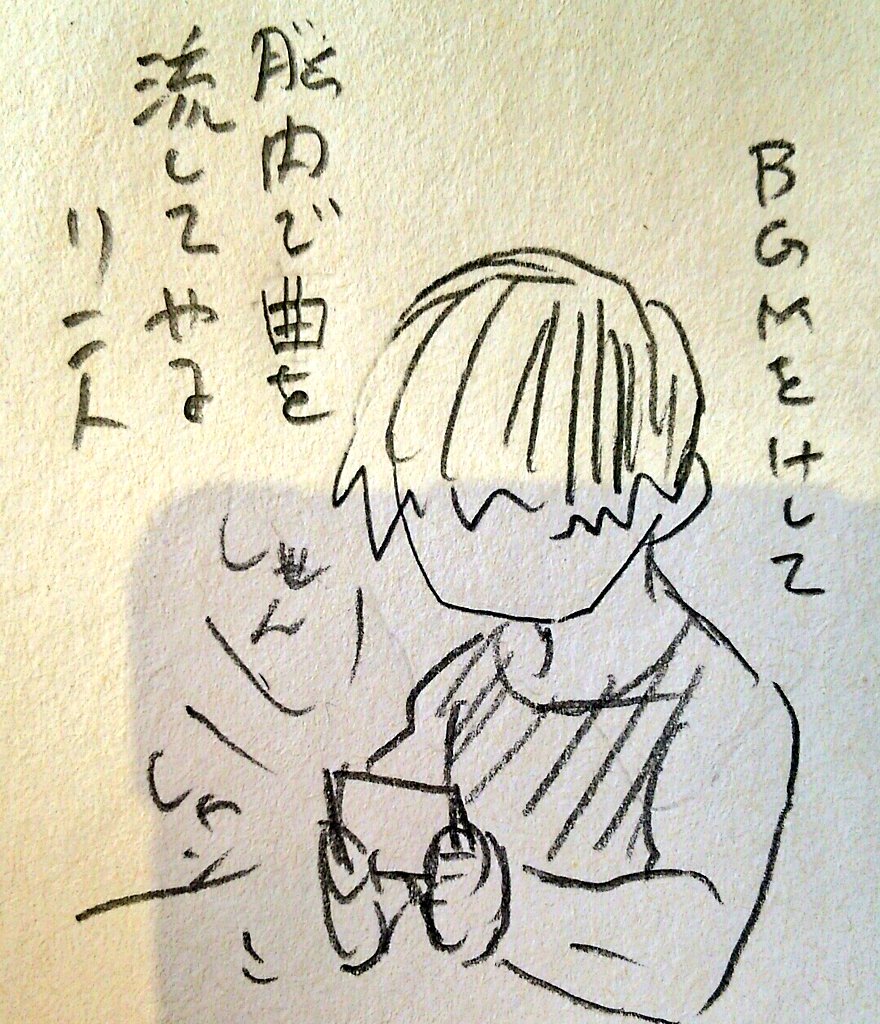 BGMをけして
脳内で曲を
流してやる
リンク
しゃん
しゃん